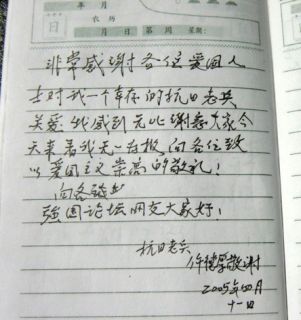 年 月
日 农历
月 日 第 周 星期:
非常感谢各位爱国人
士对我一个幸存的抗日老兵
关爱 我感到无比 谢意大家今
天来看我 无 向各位致
以爱国主义崇高的敬礼!
向各
强国论坛网友大家好!
抗日老兵
敬谢
2005年 月
十一日